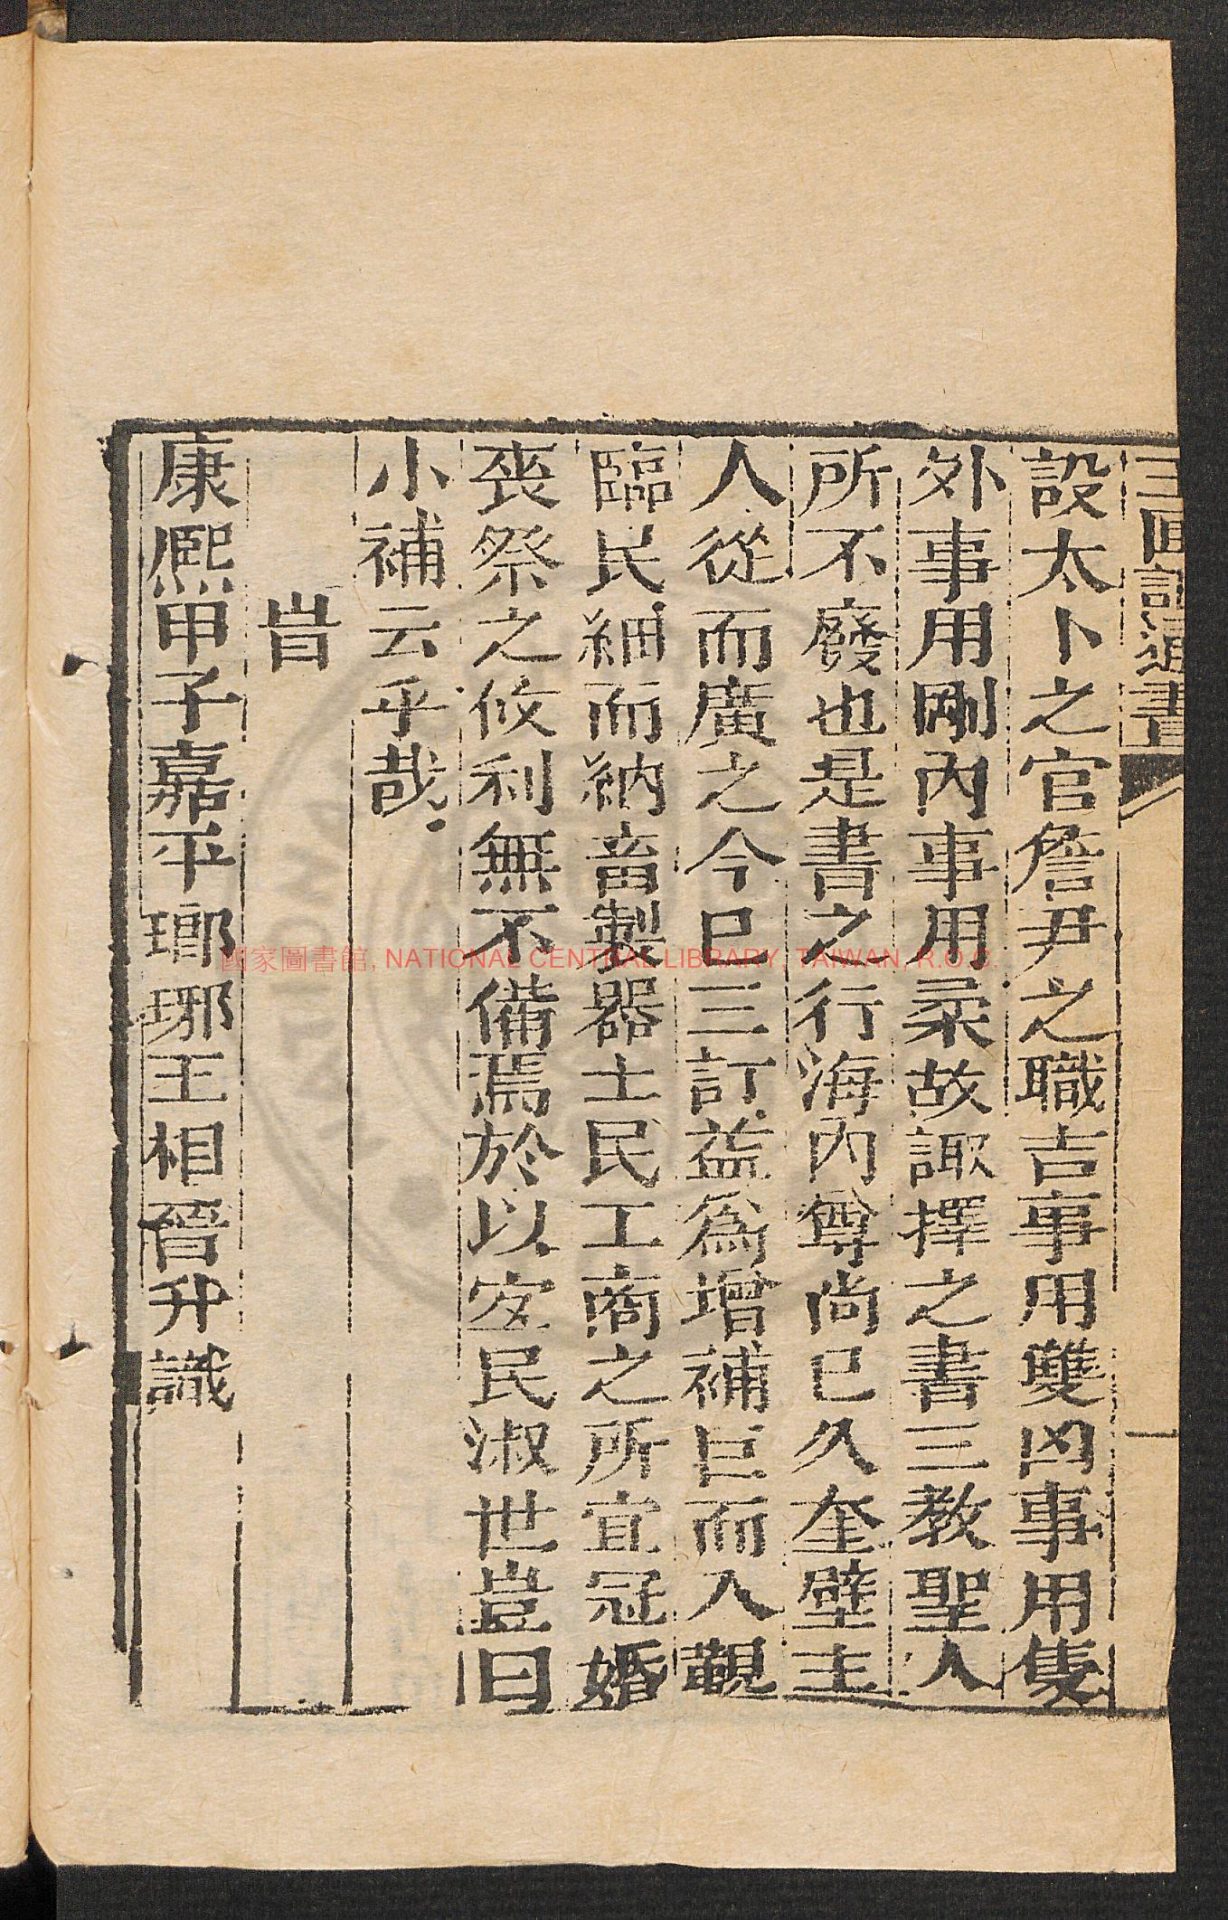 設太卜之官詹尹之職吉事用雙凶事用隻
外事用剛內事用柔故諏擇之書三教聖人
所不廢也是書之行海內尊尚已久奎壁主
人從而廣之今巳三訂益爲增補巨而入覲
臨民細而納畜製器士民工商之所宜冠婚
喪祭之攸利無不備焉於以安民淑世豈曰
小補云乎哉
旹
康熈甲子嘉平瑯琊王相晉升識
國家圖書館, NATIONAL CENTRAL LIBRARY, TAIWAN, R.O.C.